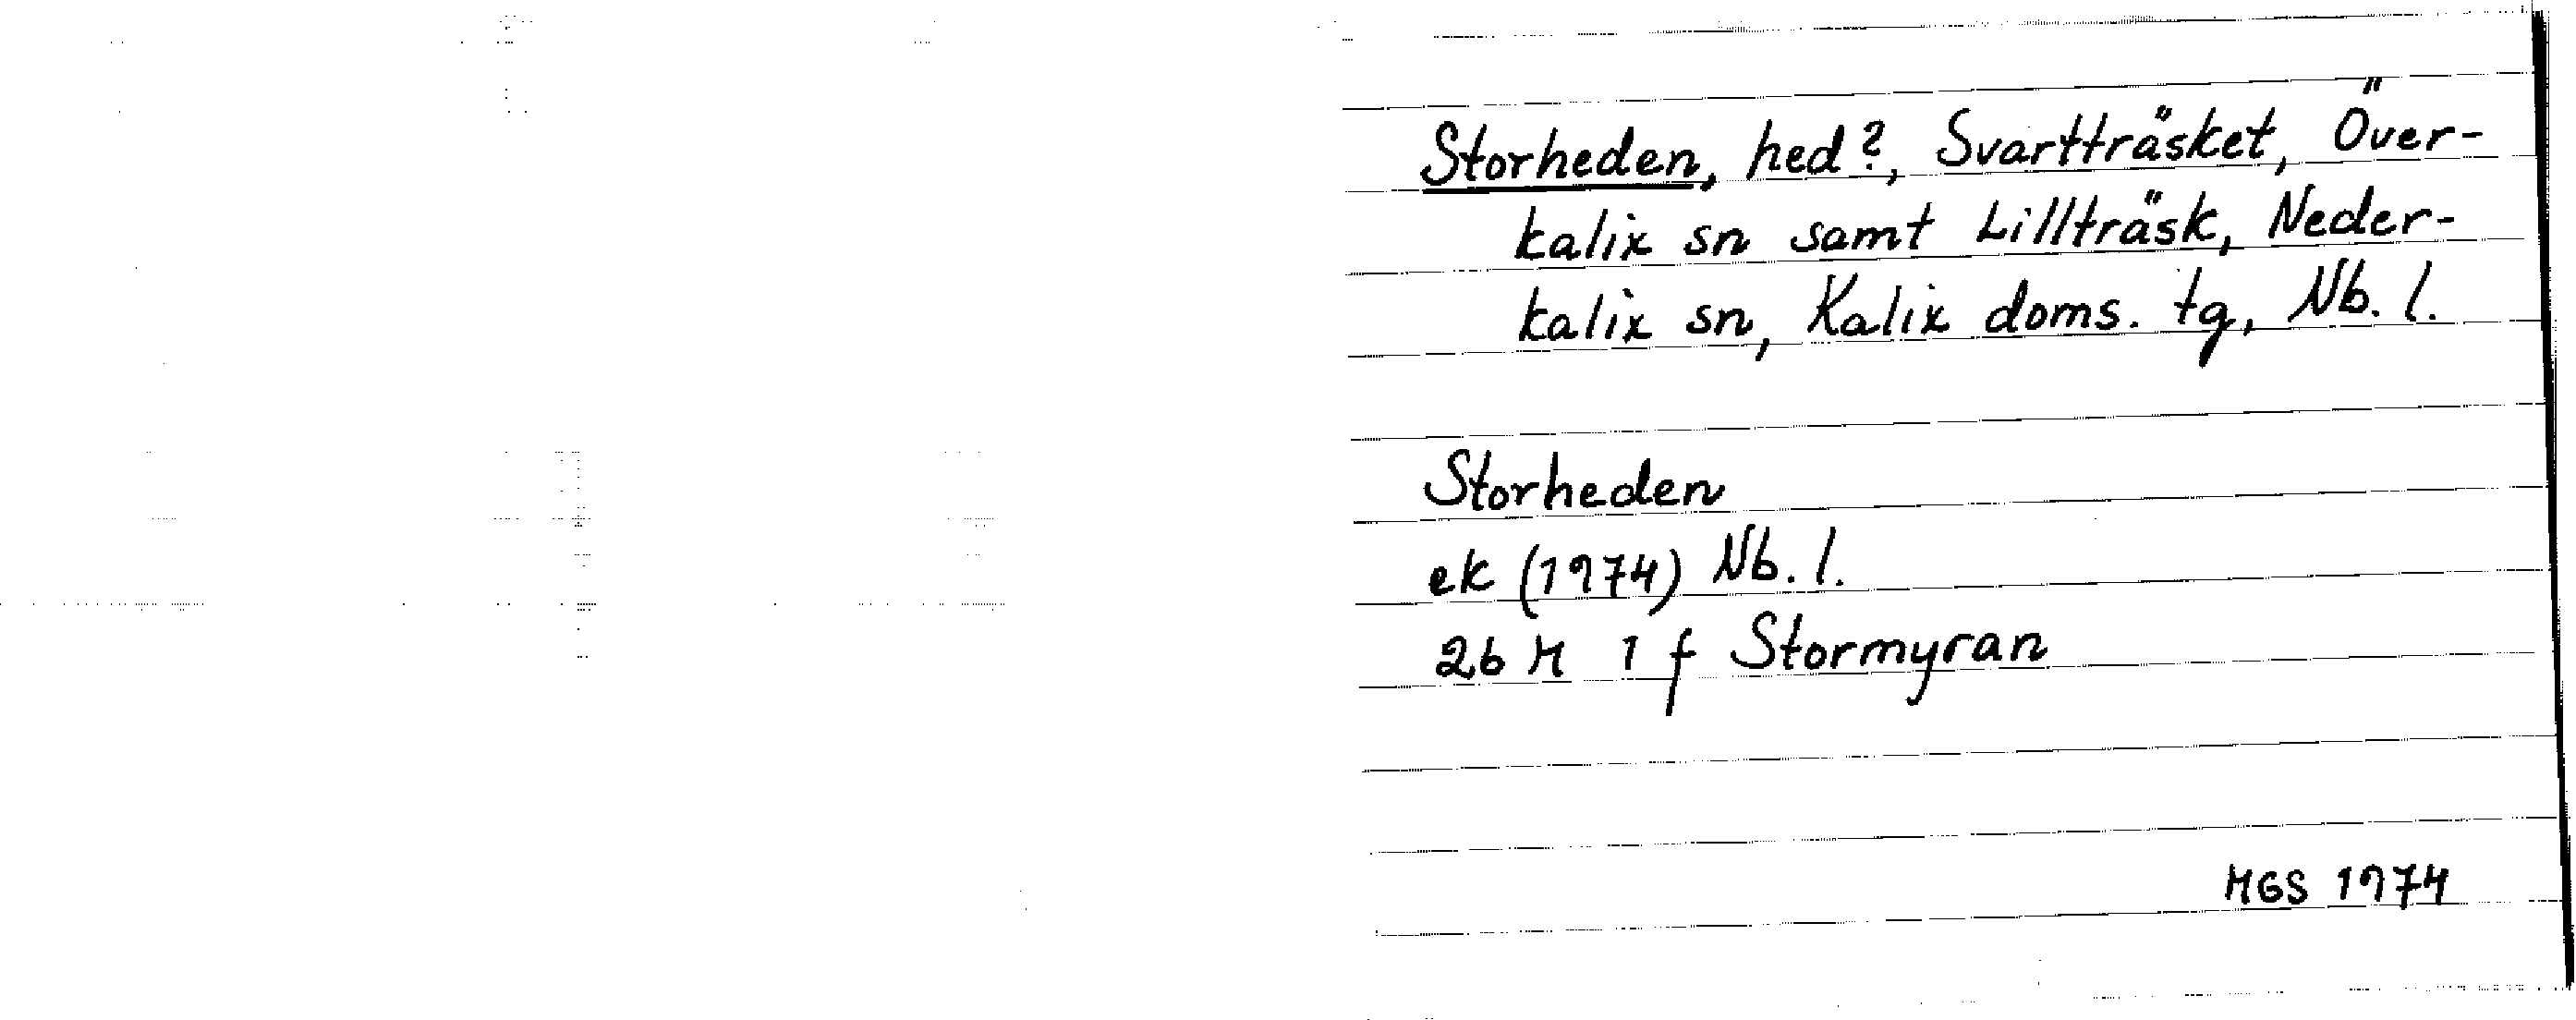 Storheden, hed?, Svartträsket, Över-
kalix sn samt Lillträsk, Neder-
kalix sn, Kalix doms. tg, Nb. l.
Storheden
ek (1974) Nb. l.
26 M 1 f Stormyran
MGS 1974